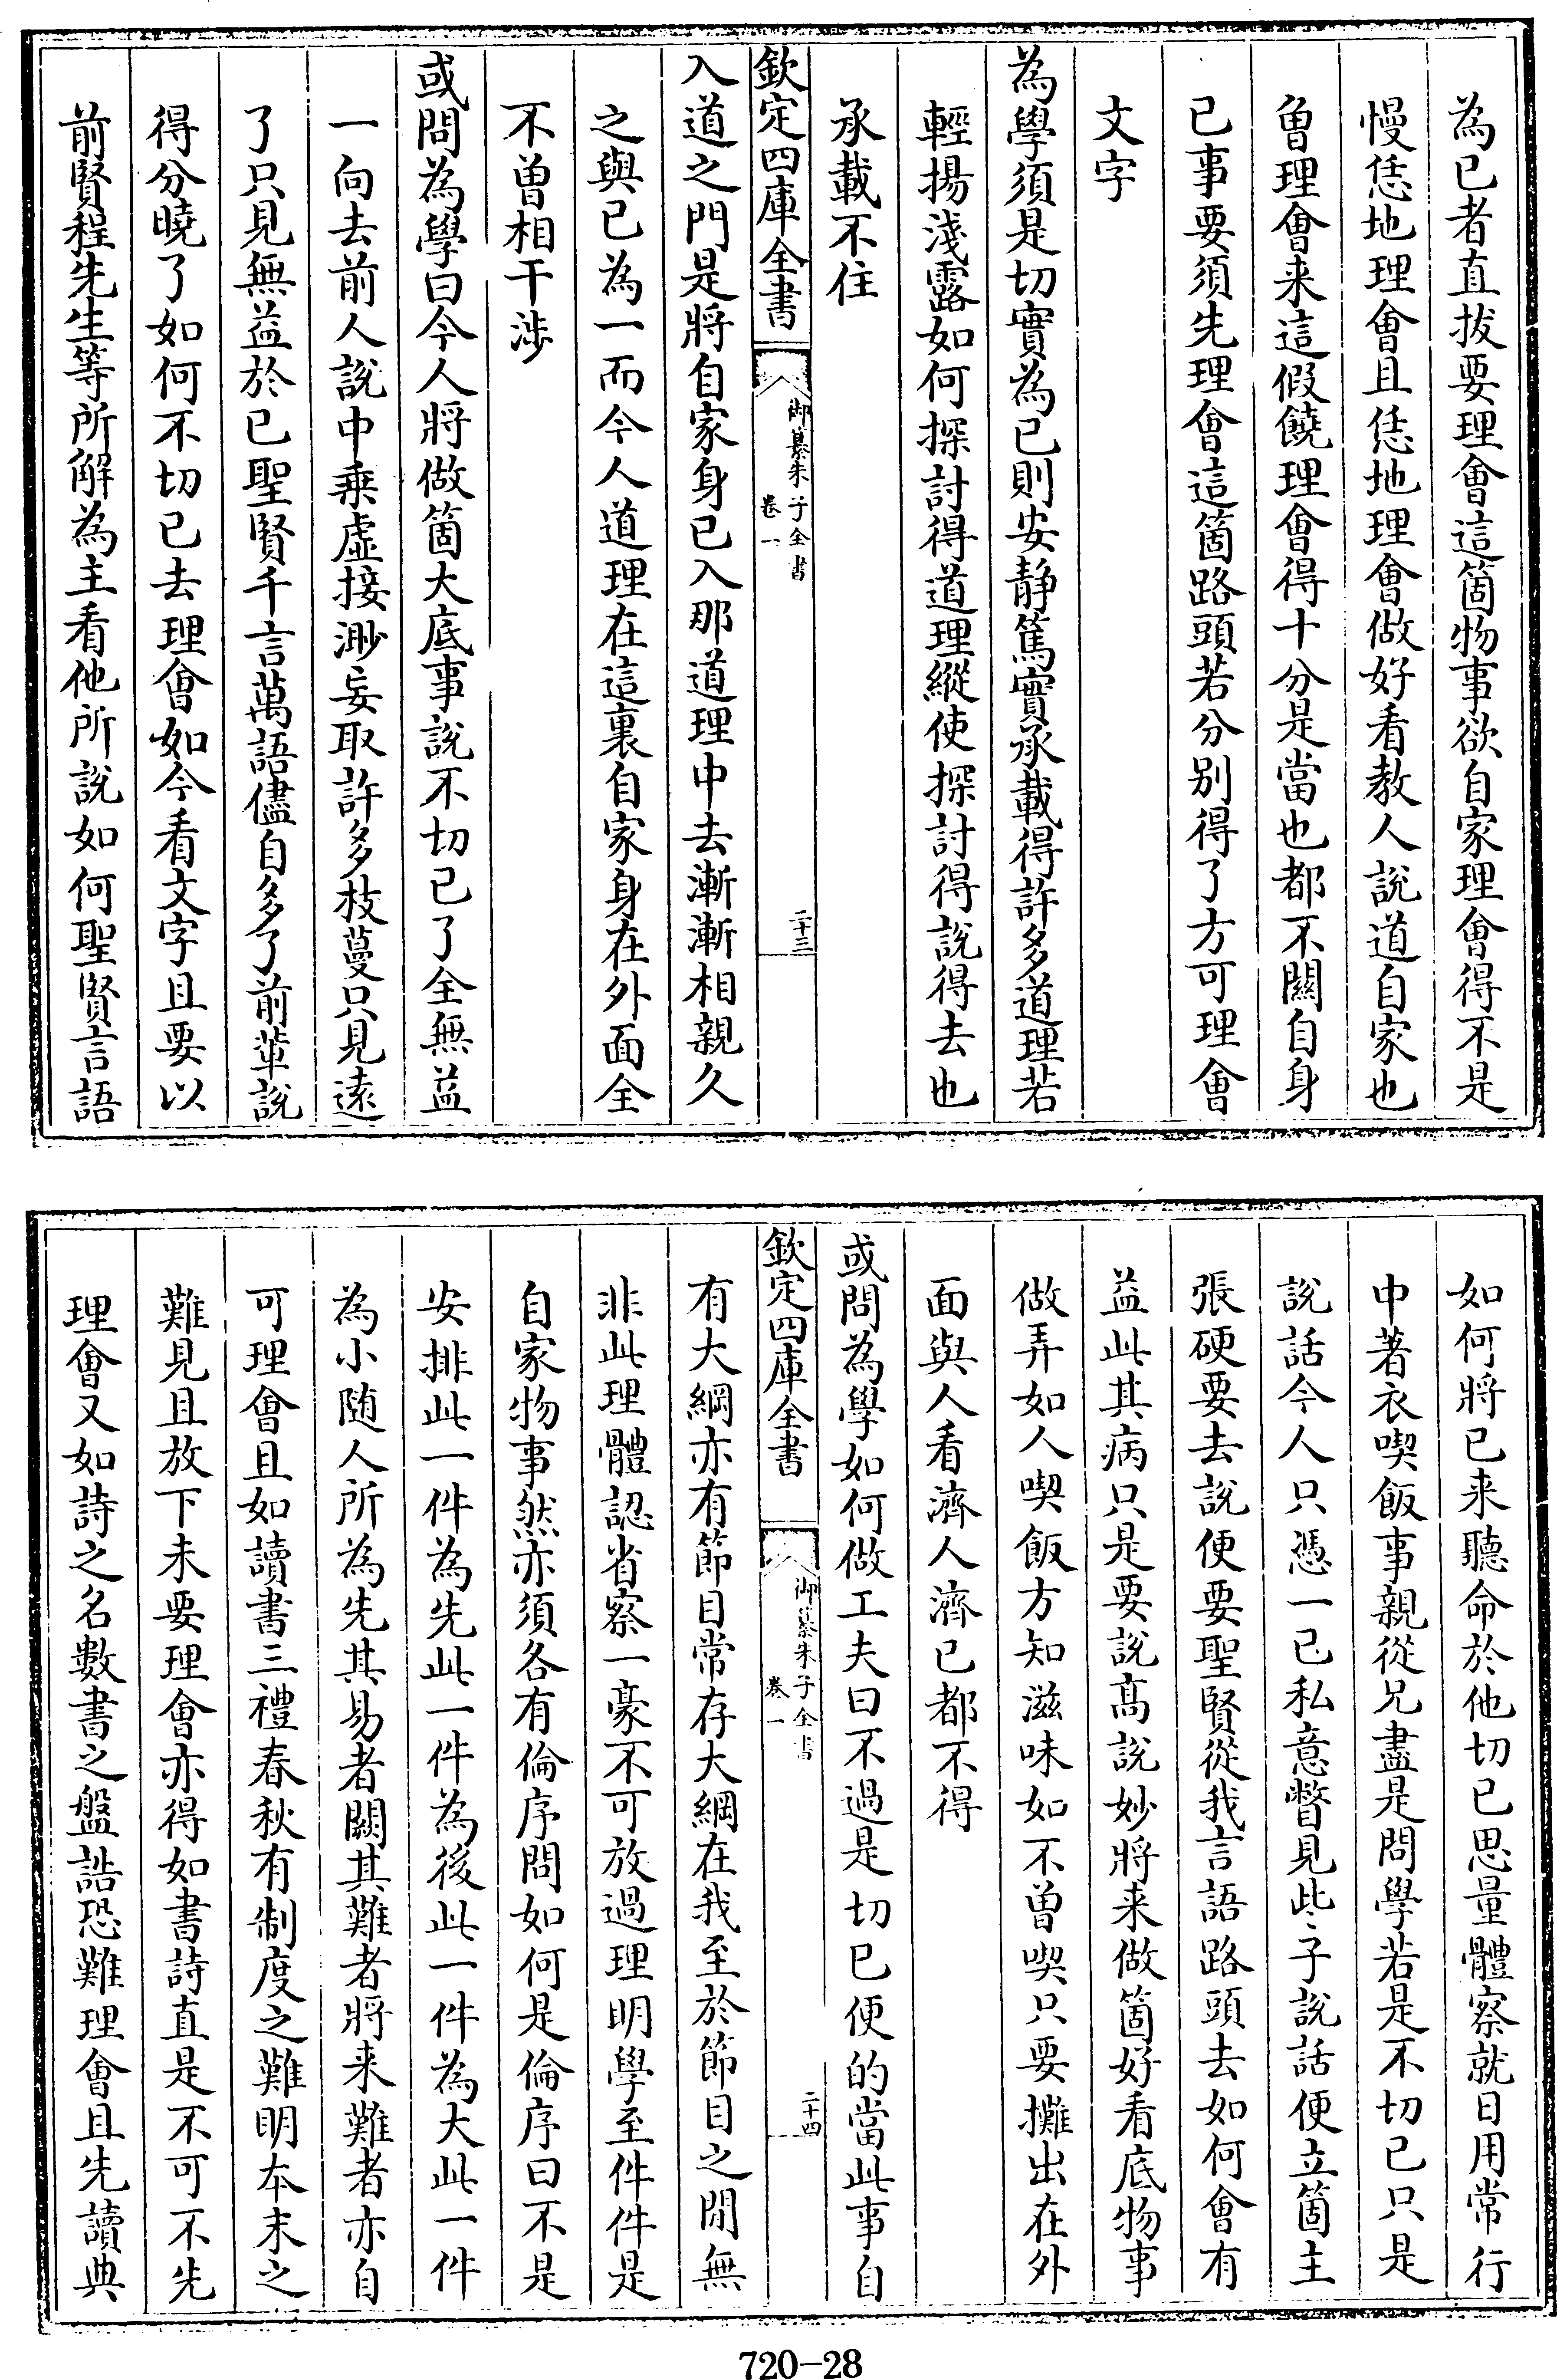 為已者直拔要理會這箇物事欲自家理會得不是
慢恁地理會且恁地理會做好看教人說道自家也
曾理會来這假饒理會得十分是當也都不關自身
已事要須先理會這箇路頭若分别得了方可理會
文字
為學須是切實為已則安靜篤實承載得許多道理若
輕揚淺露如何探討得道理縱使探討得說得去也
承載不住
欽定四庫全書
御纂朱子全書
卷一
二十三
入道之門是將自家身已入那道理中去漸漸相親久
之與已為一而今人道理在這裏自家身在外面全
不曽相干涉
或問為學曰今人將做箇大底事說不切已了全無益
一向去前人說中乗虛接渺妄取許多枝蔓只見遠
了只見無益於已聖賢千言萬語儘自多了前輩說
得分曉了如何不切已去理會如今看文字且要以
前賢程先生等所解為主看他所說如何聖賢言語
如何將已来聽命於他切已思量體察就日用常行
中著衣喫飯事親從兄盡是問學若是不切已只是
說話今人只憑一已私意瞥見些〻子說話便立箇主
張硬要去說便要聖賢從我言語路頭去如何會有
益此其病只是要說髙說妙將来做箇好看底物事
做弄如人喫飯方知滋味如不曽喫只要攤出在外
面與人看濟人濟已都不得
或問為學如何做工夫曰不過是切已便的當此事自
欽定四庫全書
御纂朱子全書
卷一
二十四
有大綱亦有節目常存大綱在我至於節目之閒無
非此理體認省察一豪不可放過理明學至件件是
自家物事然亦須各有倫序問如何是倫序曰不是
安排此一件為先此一件為後此一件為大此一件
為小随人所為先其易者闕其難者將来難者亦自
可理會且如讀書三禮春秋有制度之難明本末之
難見且放下未要理會亦得如書詩直是不可不先
理會又如詩之名數書之盤誥恐難理會且先讀典
720-28